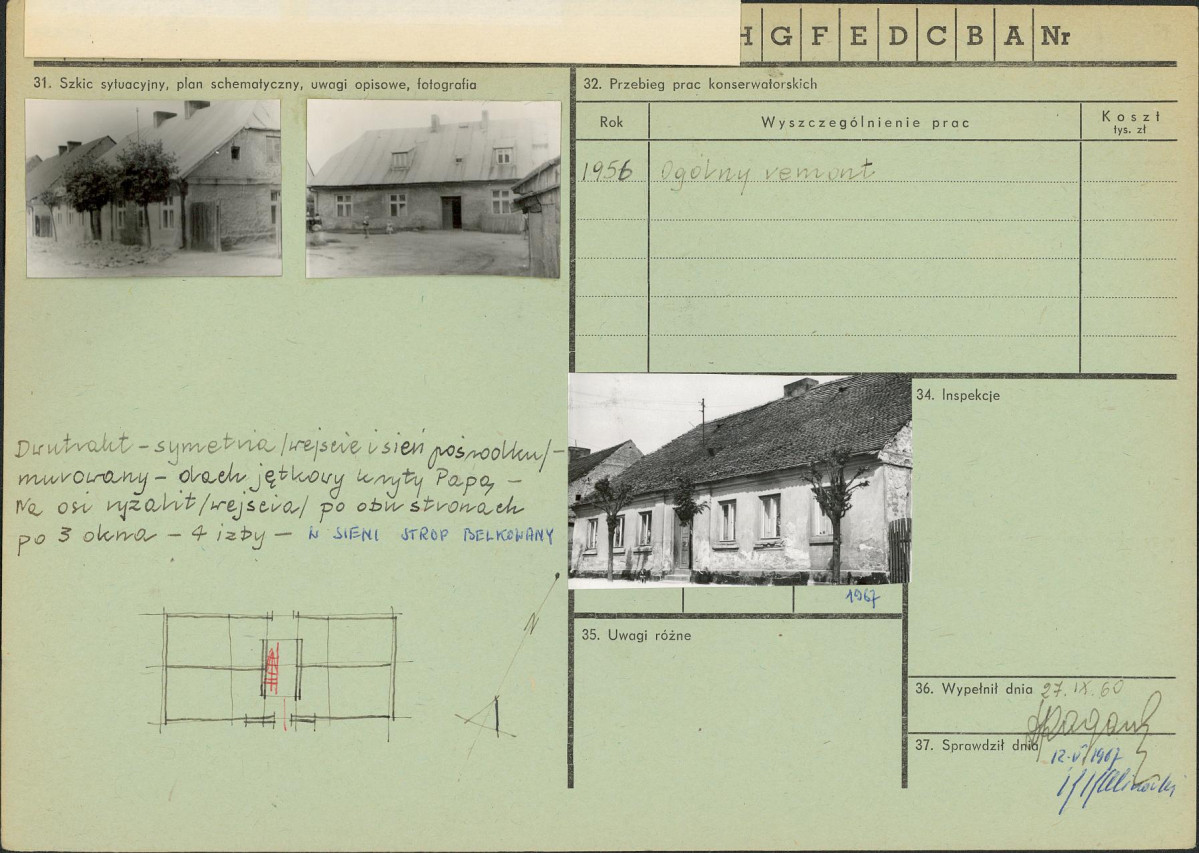 H G F E D C B A Nr
31. Szkic sytuacyjny, plan schematyczny, uwagi opisowe, fotografia
Dwutrakt – symetria /wejście i sień pośrodku/ –
murowany – dach jętkowy kryty Papą –
Na osi ryzalit /wejścia/ po obu stronach
po 3 okna – 4 izby – W SIENI STROP BELKOWANY
N
32. Przebieg prac konserwatorskich
Rok Wyszczególnienie prac Koszt
tys. zł
1956 Ogólny remont
1967
34. Inspekcje
35. Uwagi różne
36. Wypełnił dnia 27.IX.60
37. Sprawdził dnia
12.V.1967